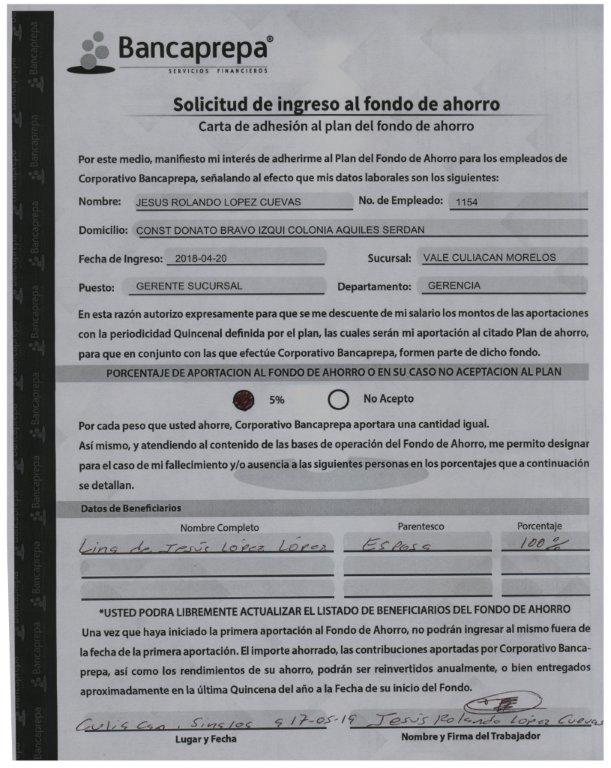 Bancaprepa®
SERVICIOS FINANCIEROS
Solicitud de ingreso al fondo de ahorro
Carta de adhesión al plan del fondo de ahorro
Por este medio, manifiesto mi interés de adherirme al Plan del Fondo de Ahorro para los empleados de
Corporativo Bancaprepa, señalando al efecto que mis datos laborales son los siguientes:
Nombre: JESUS ROLANDO LOPEZ CUEVAS No. de Empleado: 1154
Domicilio: CONST DONATO BRAVO IZQUI COLONIA AQUILES SERDAN
Fecha de Ingreso: 2018-04-20 Sucursal: VALE CULIACAN MORELOS
Puesto: GERENTE SUCURSAL Departamento: GERENCIA
En esta razón autorizo expresamente para que se me descuente de mi salario los montos de las aportaciones
con la periodicidad Quincenal definida por el plan, las cuales serán mi aportación al citado Plan de ahorro,
para que en conjunto con las que efectúe Corporativo Bancaprepa, formen parte de dicho fondo.
PORCENTAJE DE APORTACION AL FONDO DE AHORRO O EN SU CASO NO ACEPTACION AL PLAN
5% No Acepto
Por cada peso que usted ahorre, Corporativo Bancaprepa aportara una cantidad igual.
Así mismo, y atendiendo al contenido de las bases de operación del Fondo de Ahorro, me permito designar
para el caso de mi fallecimiento y/o ausencia a las siguientes personas en los porcentajes que a continuación
se detallan.
Datos de Beneficiarios
Nombre Completo Parentesco Porcentaje
Lina de Jesús López López Esposa 100%
*USTED PODRA LIBREMENTE ACTUALIZAR EL LISTADO DE BENEFICIARIOS DEL FONDO DE AHORRO
Una vez que haya iniciado la primera aportación al Fondo de Ahorro, no podrán ingresar al mismo fuera de
la fecha de la primera aportación. El importe ahorrado, las contribuciones aportadas por Corporativo Banca-
prepa, así como los rendimientos de su ahorro, podrán ser reinvertidos anualmente, o bien entregados
aproximadamente en la última Quincena del año a la Fecha de su inicio del Fondo.
Culiacan, Sinaloa a 17-05-19 Jesús Rolando López Cuevas
Lugar y Fecha Nombre y Firma del Trabajador